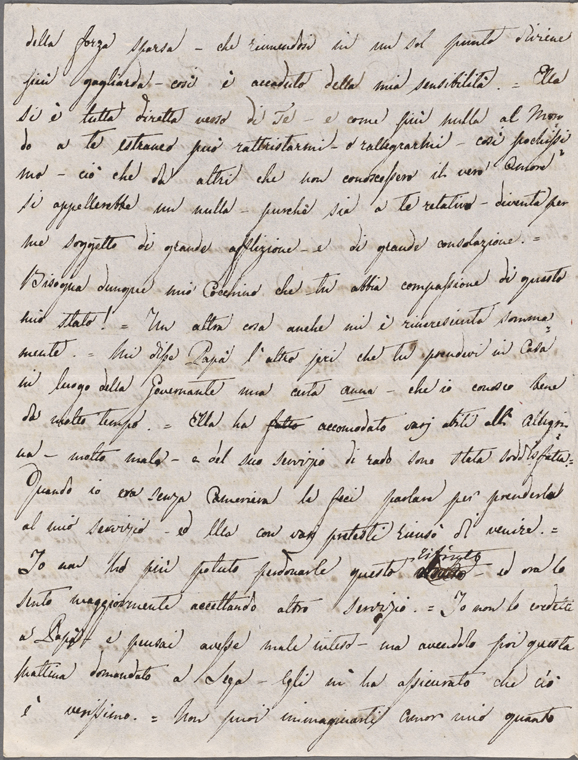 della forza sparsa - che riunendosi in un sol punto diviene
più gagliarda - così è accaduto della mia sensibilità. = Ella
si è tutta diretta verso di Te - e come più nulla al Mon=
do a te estraneo può rattristarmi - o rallegrarmi - così pochissi
mo - ciò che da altri che non conoscessero il vero Amore
si appellerebbe un nulla - purchè sia a te relativo - diventa per
me soggetto di grande afflizione - e di grande consolazione. =
Bisogna dunque mio Cocchino che tu abbia compassione di questo
mio stato! = Un altra cosa anche mi è rincresciuta somma=
mente. = Mi disse Papà l'altro jeri che tu prendevi in Casa
in luogo della Governante una certa - che io conosco bene
da molto tempo. = Ella ha fatto accomodato varj abiti all'
na - molto male - e del suo servizio di rado sono stata soddisfatta=
Quando io era senza Cameriera le feci parlare per prenderla
al mio servizio - ed Ella con varj pretesti ricusò di venire. =
Io non ho più potuto perdonarle questo rifiuto - ed ora lo
sento maggiormente accettando altro servizio. = Io non lo credetti
a Papà - e pensai avesse male inteso - ma avendolo poi questa
mattina domandato a Lega - Egli mi ha assicurato che ciò
è verissimo. = Non puoi immaginarti Amor mio quanto